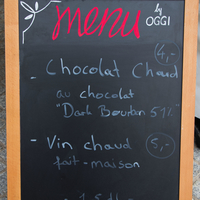 menu
OGGI
4,-
- Chocolat Chaud
au chocolat
"Dark Bourbon 51%"
- Vin chaud 5,-
fait-maison